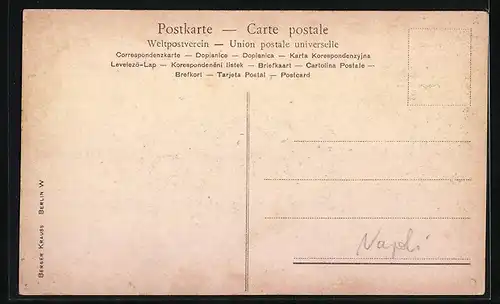 Postkarte — Carte postale
Weltpostverein — Union postale universelle
Correspondenzkarte — Dopisnice — Dopisnica — Karta Korespondenzyjna
Levelező-Lap — Korespondenční lístek — Briefkaart — Cartolina Postale —
Brefkort — Tarjeta Postal — Postcard
Berser Krauss Berlin W
Napoli